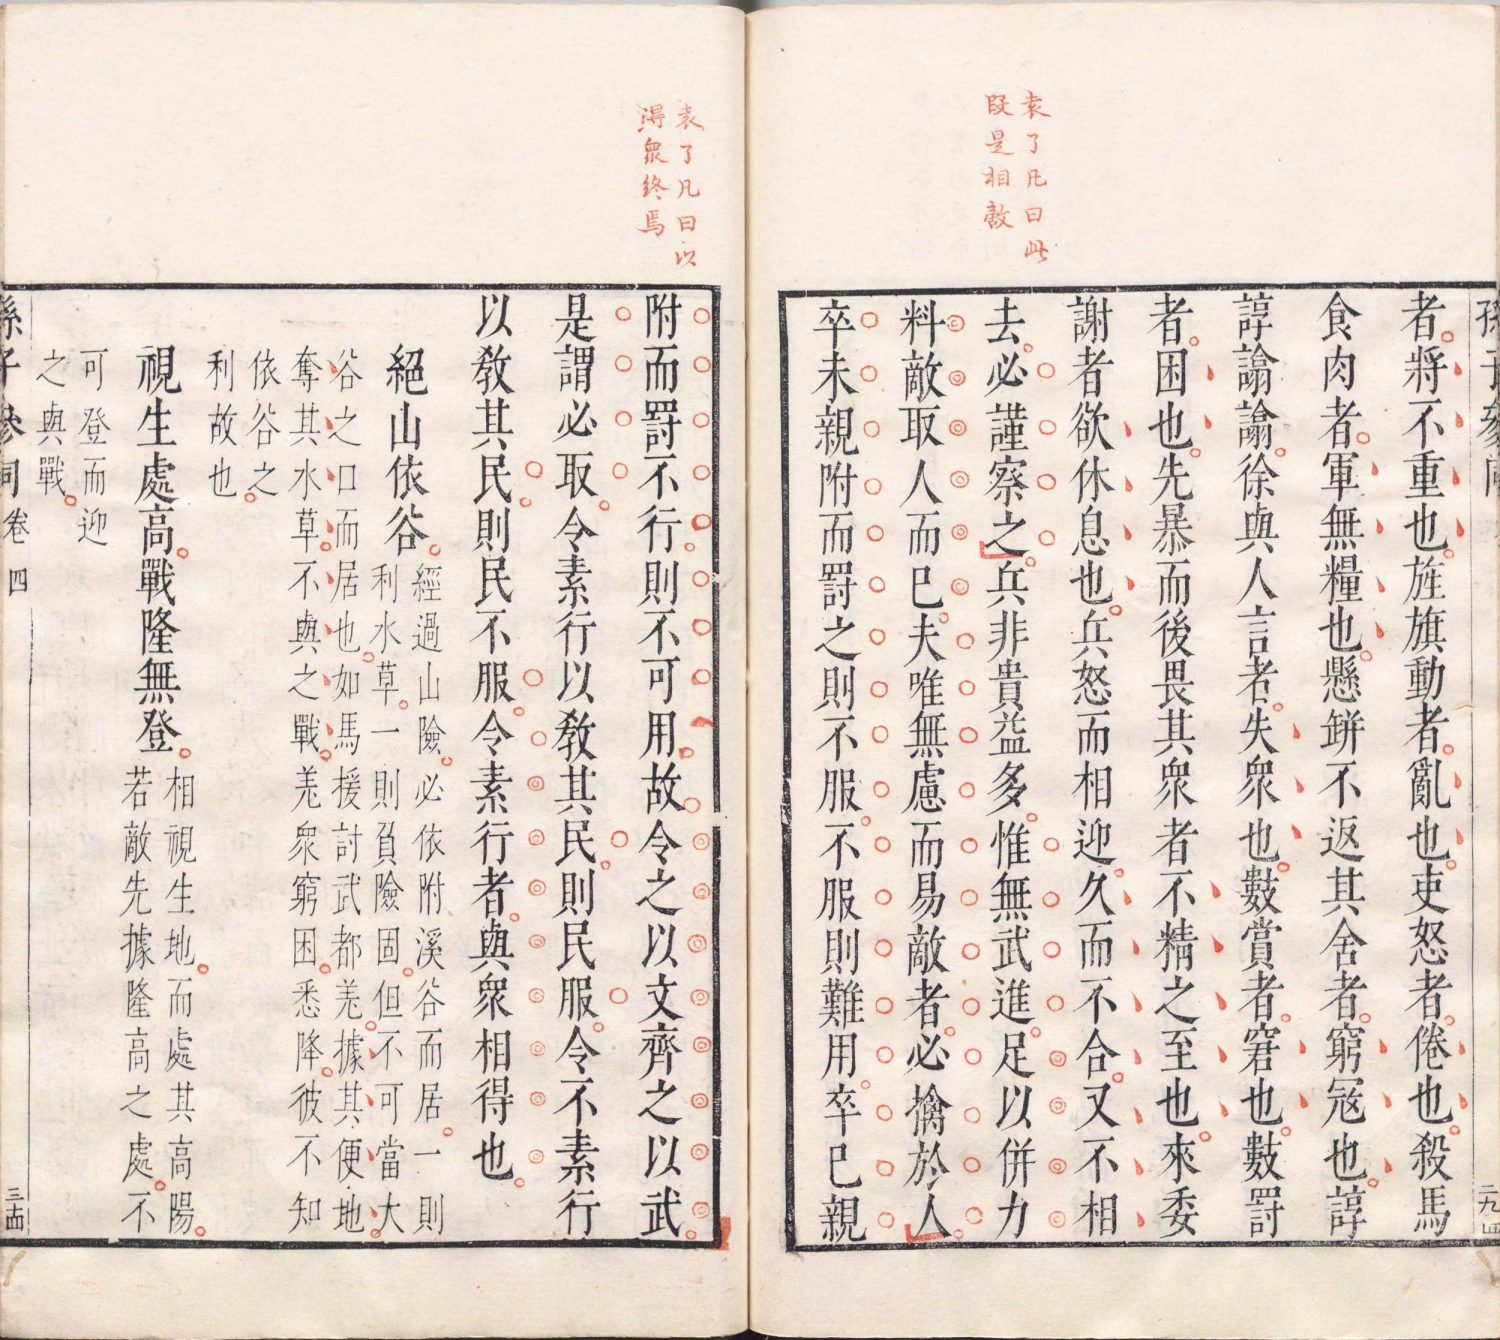 袁了凡曰此
段是相敵
者將不重也旌旗動者亂也吏怒者倦也殺馬
食肉者軍無糧也懸缾不返其舍者窮寇也諄
諄諭諭徐與人言者失衆也數賞者窘也數罰
者困也先暴而後畏其衆者不精之至也來委
謝者欲休息也兵怒而相迎久而不合又不相
去必謹察之兵非貴益多惟無武進足以併力
料敵取人而已夫唯無慮而易敵者必擒於人
卒未親附而罰之則不服不服則難用卒已親
袁了凡曰以
得衆終焉
附而罰不行則不可用故令之以文齊之以武
是謂必取令素行以敎其民則民服令不素行
以敎其民則民不服令素行者與衆相得也
絕山依谷
經過山險必依附溪谷而居一則
利水草一則負險固但不可當大
谷之口而居也如馬援討武都羌據其便地
奪其水草不與之戰羌衆窮困悉降彼不知
依谷之
利故也
視生處高戰隆無登
相視生地而處其高陽
若敵先據隆高之處不
可登而迎
之與戰
孫子參同卷四